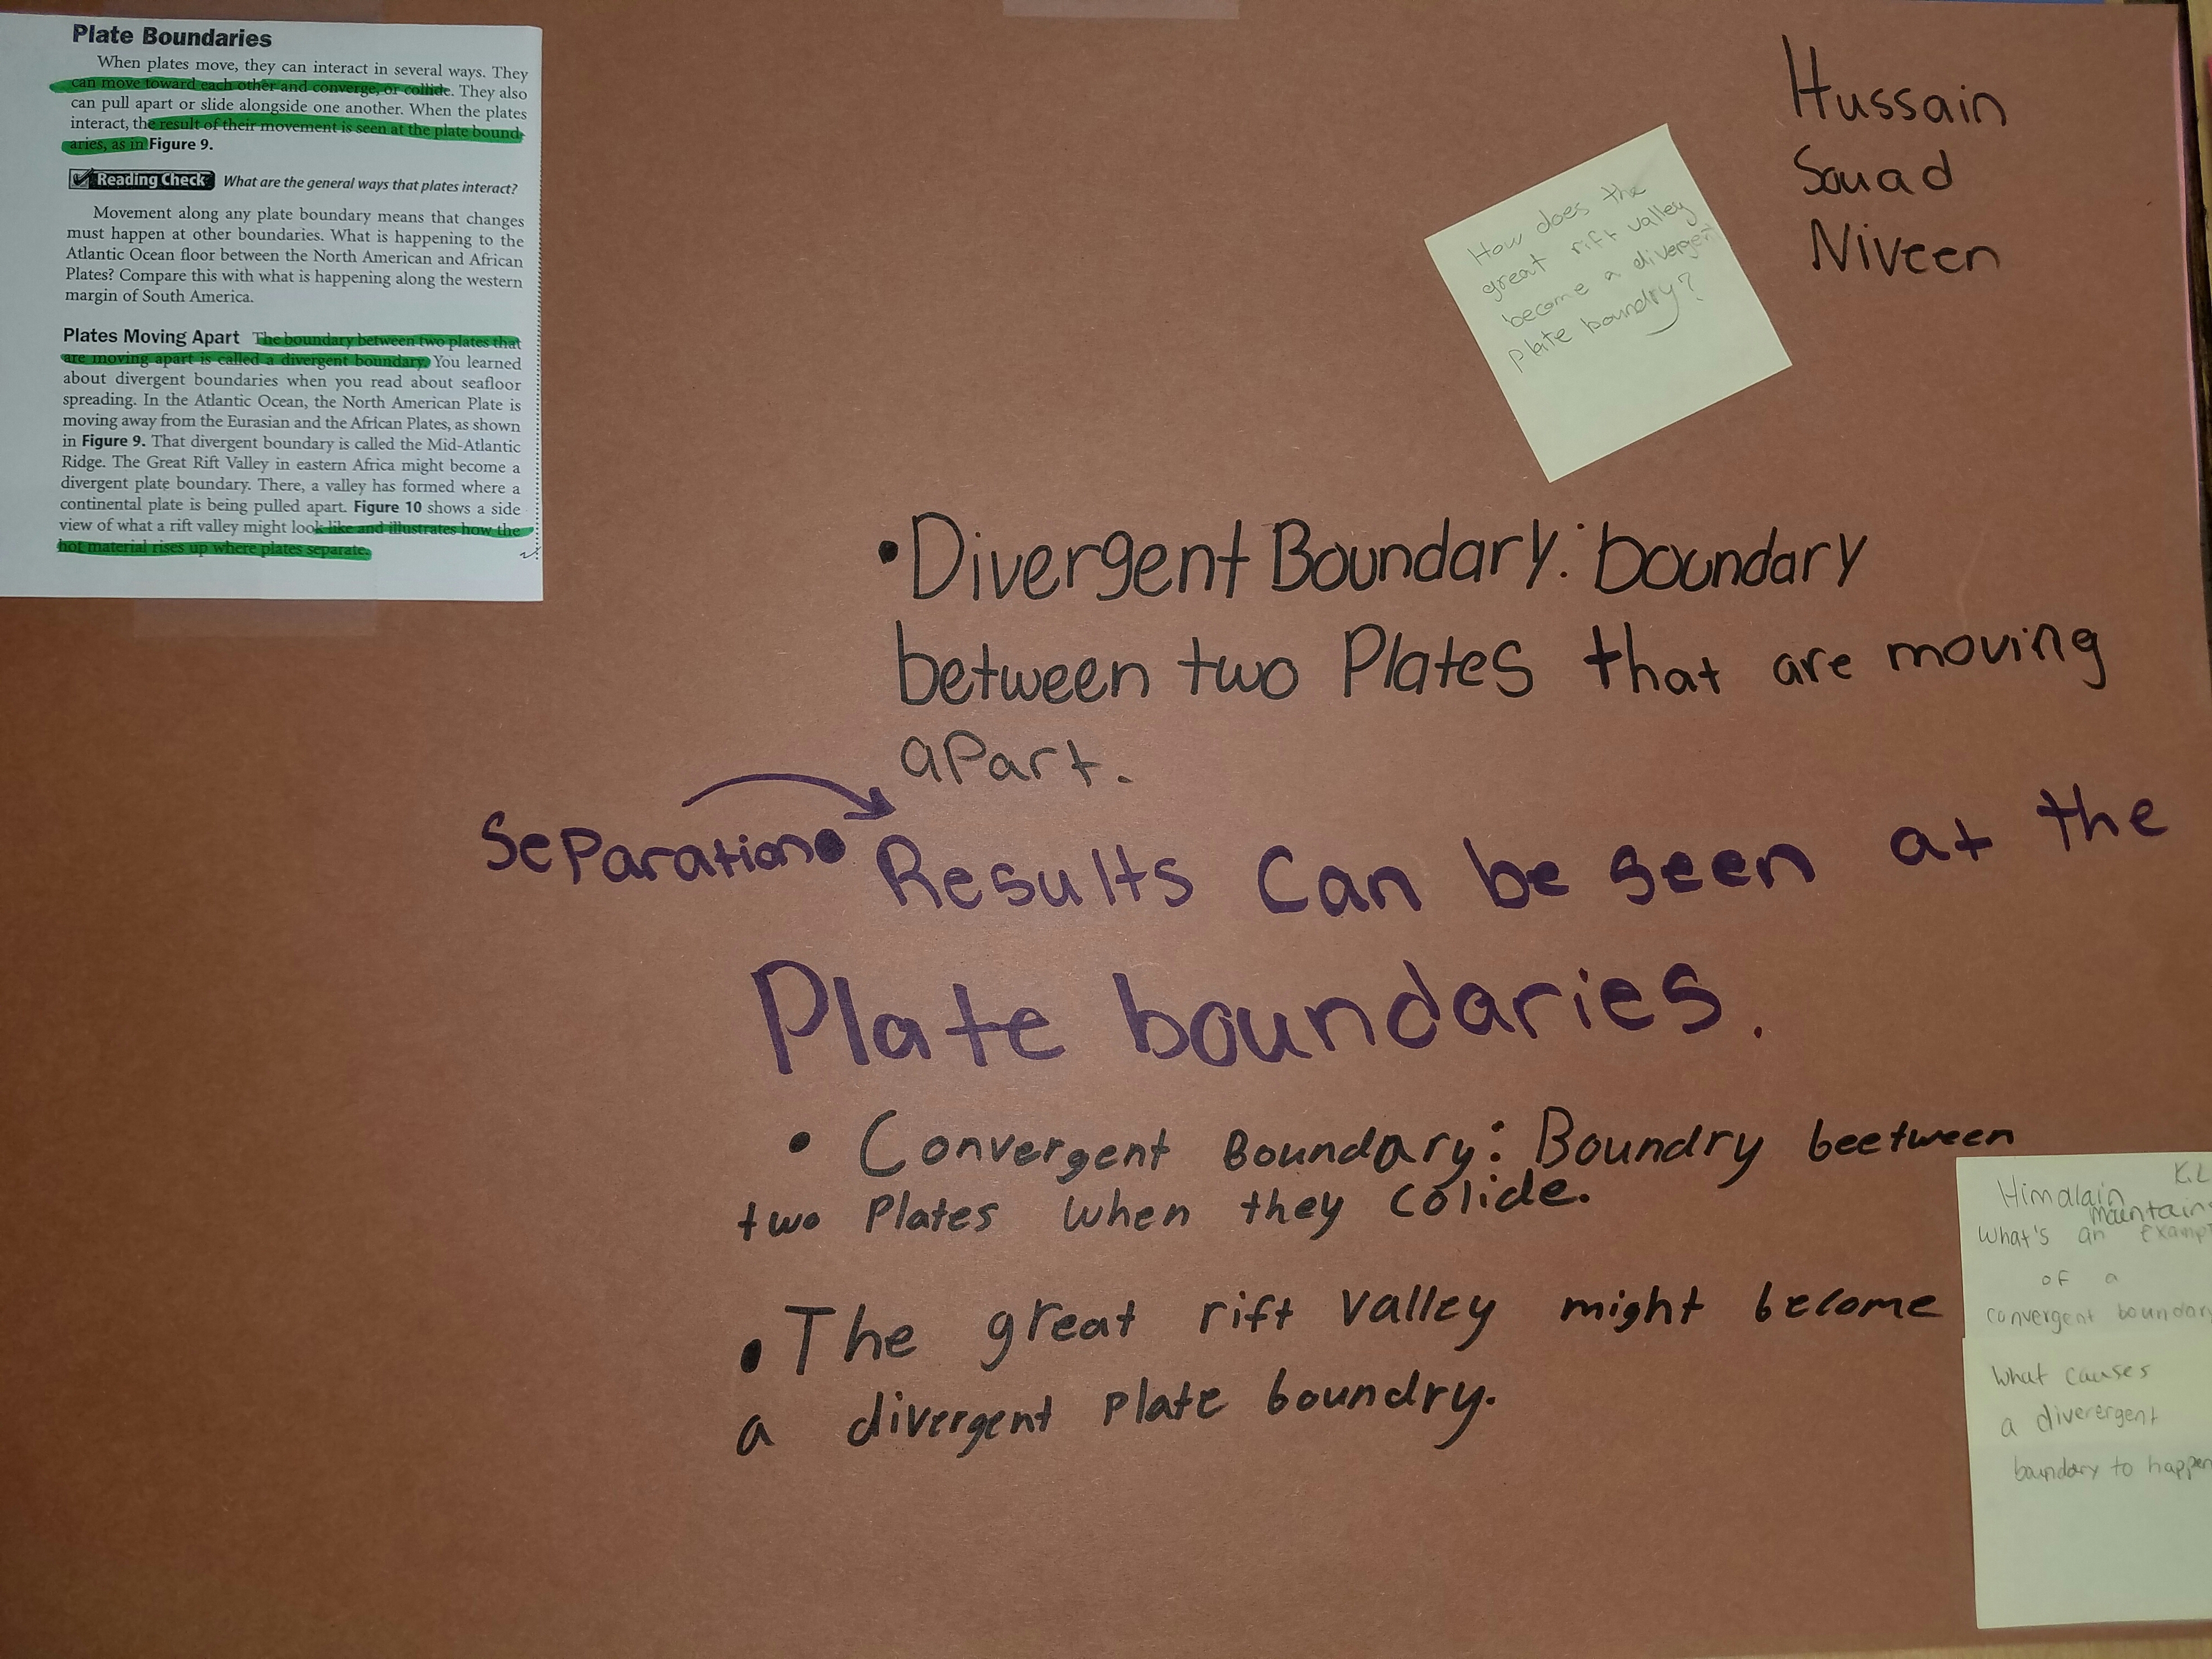 Plate Boundaries
When plates move, they can interact in several ways. They
can move toward each other and converge, or collide. They also
can pull apart or slide alongside one another. When the plates
interact, the result of their movement is seen at the plate bound-
aries, as in Figure 9.
Reading Check What are the general ways that plates interact?
Movement along any plate boundary means that changes
must happen at other boundaries. What is happening to the
Atlantic Ocean floor between the North American and African
Plates? Compare this with what is happening along the western
margin of South America.
Plates Moving Apart The boundary between two plates that
are moving apart is called a divergent boundary. You learned
about divergent boundaries when you read about seafloor
spreading. In the Atlantic Ocean, the North American Plate is
moving away from the Eurasian and the African Plates, as shown
in Figure 9. That divergent boundary is called the Mid-Atlantic
Ridge. The Great Rift Valley in eastern Africa might become a
divergent plate boundary. There, a valley has formed where a
continental plate is being pulled apart. Figure 10 shows a side
view of what a rift valley might look like and illustrates how the
hot material rises up where plates separate.
Hussain
Souad
Niveen
How does the
great rift valley
become a divergent
plate boundry?
• Divergent Boundary: boundary
between two Plates that are moving
apart.
Separation • Results can be seen at the
Plate boundaries.
• Convergent Boundary: Boundry beetween
two Plates when they colide.
• The great rift valley might become
a divergent plate boundry.
Himalain
Mountains
What's an
of a
convergent boundary
What causes
a diverergent
boundary to happen